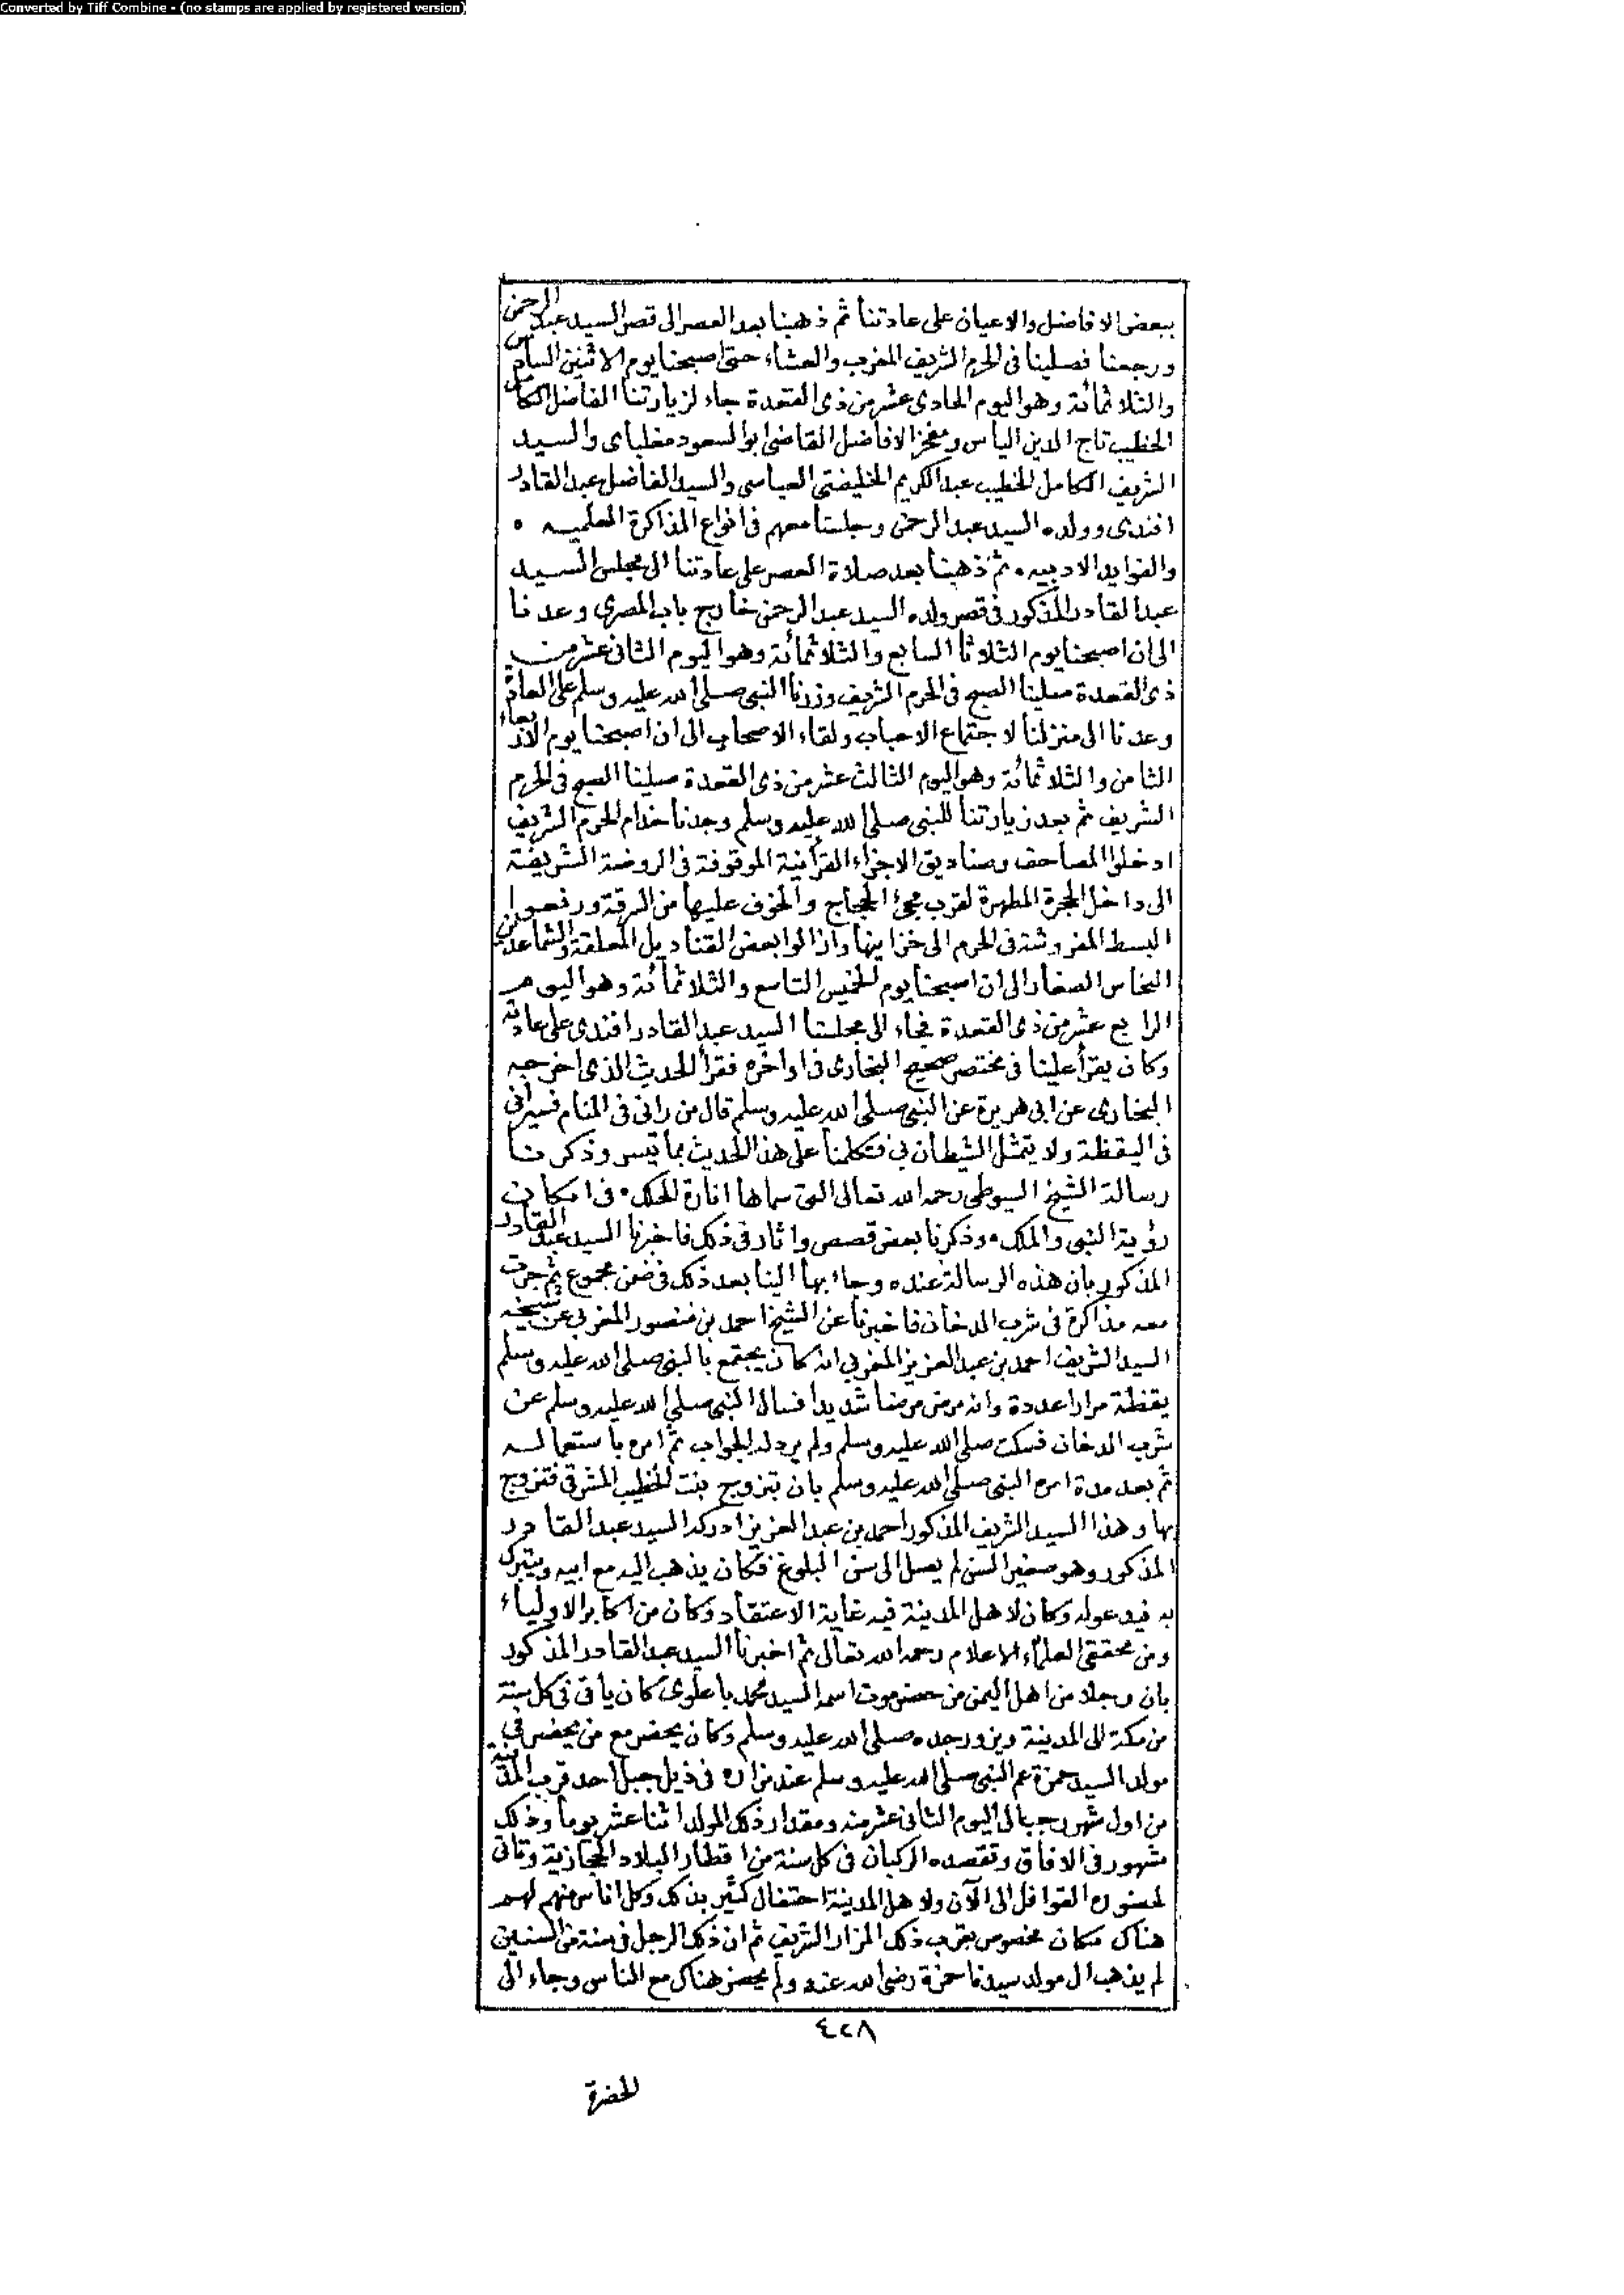 Converted by Tiff Combine - (no stamps are applied by registered version)
ببعض الافاضل والاعيان على عادتنا ثم ذهبنا بعد العصر الى قصر السيد عبد الرحمن
ورجعنا فصلينا فى الحرم الشريف المغرب والعشاء حتى اصبحنا يوم الاثنين السادس
والثلاثمائة وهو اليوم الحادى عشر من ذى القعدة جاء لزيارتنا الفاضل الكامل
الخطيب تاج الدين الياس ومفخر الافاضل القاضى ابو السعود مغلباى والسيد
الشريف الكامل الخطيب عبد الكريم الخليفتى العباسى والسيد الفاضل عبد القادر
افندى وولده السيد عبد الرحمن وجلسنا معهم فى انواع المذاكرة العلميه ٠
والفوايد الادبيه ٠ ثم ذهبنا بعد صلاة العصر على عادتنا الى مجلس السيد
عبد القادر المذكور فى قصر ولده السيد عبد الرحمن خارج باب المصرى وعدنا
الى ان اصبحنا يوم الثلاثا السابع والثلاثمائة وهو اليوم الثانى عشر من
ذى القعدة صلينا الصبح فى الحرم الشريف وزرنا النبى صلى الله عليه وسلم على العادة
وعدنا الى منزلنا لاجتماع الاحباب ولقاء الاصحاب الى ان اصبحنا يوم الاربعاء
الثامن والثلاثمائة وهو اليوم الثالث عشر من ذى القعدة صلينا الصبح فى الحرم
الشريف ثم بعد زيارتنا للنبى صلى الله عليه وسلم وجدنا خدام الحرم الشريف
ادخلوا المصاحف وصناديق الاجزاء القرآنية الموقوفة فى الروضة الشريفة
الى داخل الحجرة المطهرة لقرب مجئ الحجاج والخوف عليها من السرقة ورفعوا
البسط المفروشة فى الحرم الى خزاينها وازالوا بعض القناديل المعلقة والشماعدين
النحاس الصغار الى ان اصبحنا يوم الخميس التاسع والثلاثمائة وهو اليوم
الرابع عشر من ذى القعدة فجاء الى مجلسنا السيد عبد القادر افندى على عادته
وكان يقرأ علينا فى مختصر صحيح البخارى فى اواخره فقرأ الحديث الذى اخرجه
البخارى عن ابى هريرة عن النبى صلى الله عليه وسلم قال من رانى فى المنام فسيرانى
فى اليقظة ولا يتمثل الشيطان بى فتكلمنا على هذا الحديث بما تيسر وذكرنا
رسالة الشيخ السيوطى رحمه الله تعالى التى سماها انارة الحلك ٠ فى امكان
رؤية النبى والملك ٠ وذكرنا بعض قصص واثار فى ذلك فاخبرنا السيد عبد القادر
المذكور بان هذه الرسالة عنده وجاء بها الينا بعد ذلك فى ضمن مجموع ثم جرت
معه مذاكرة فى شرب الدخان فاخبرنا عن الشيخ احمد بن منصور المغربى عن شيخه
السيد الشريف احمد بن عبد العزيز المغربى انه كان يجتمع بالنبى صلى الله عليه وسلم
يقظة مرارا عددة وانه مرض مرضا شديدا فسال النبى صلى الله عليه وسلم عن
شرب الدخان فسكت صلى الله عليه وسلم ولم يرد له الجواب ثم امره باستعماله
ثم بعد مدة امره النبى صلى الله عليه وسلم بان تتزوج بنت الخطيب المشرقى فتزوج
بها وهذا السيد الشريف المذكور احمد بن عبد العزيز ادركه السيد عبد القادر
المذكور وهو صغير السن لم يصل الى سن البلوغ فكان يذهب اليه مع ابيه ويتبرك
به فيدعو له وكان لاهل المدينة فيه غاية الاعتقاد وكان من اكابر الاولياء
ومن محققى العلماء الاعلام رحمه الله تعالى ثم اخبرنا السيد عبد القادر المذكور
بان رجلا من اهل اليمن من حضرموت اسمه السيد محمد باعلوى كان ياتى فى كل سنة
من مكة الى المدينة ويزور جده صلى الله عليه وسلم وكان يحضر مع من يحضر فى
مولد السيد حمزة عم النبى صلى الله عليه وسلم عند مزاره فى ذيل جبل احد قرب المدينة
من اول شهر رجب الى اليوم الثانى عشر منه ومقدار ذلك المولد اثنا عشر يوما وذلك
مشهور فى الافاق وتقصده الركبان فى كل سنة من اقطار البلاد الحجازية وتاتى
لحضوره القوافل الى الآن ولاهل المدينة احتفال كثير بذلك وكل اناس منهم لهم
هناك مكان مخصوص بقرب ذلك المزار الشريف ثم ان ذلك الرجل فى سنة من السنين
لم يذهب الى مولد سيدنا حمزة رضى الله عنه ولم يحضر هناك مع الناس وجاء الى
٤٢٨
للحضرة